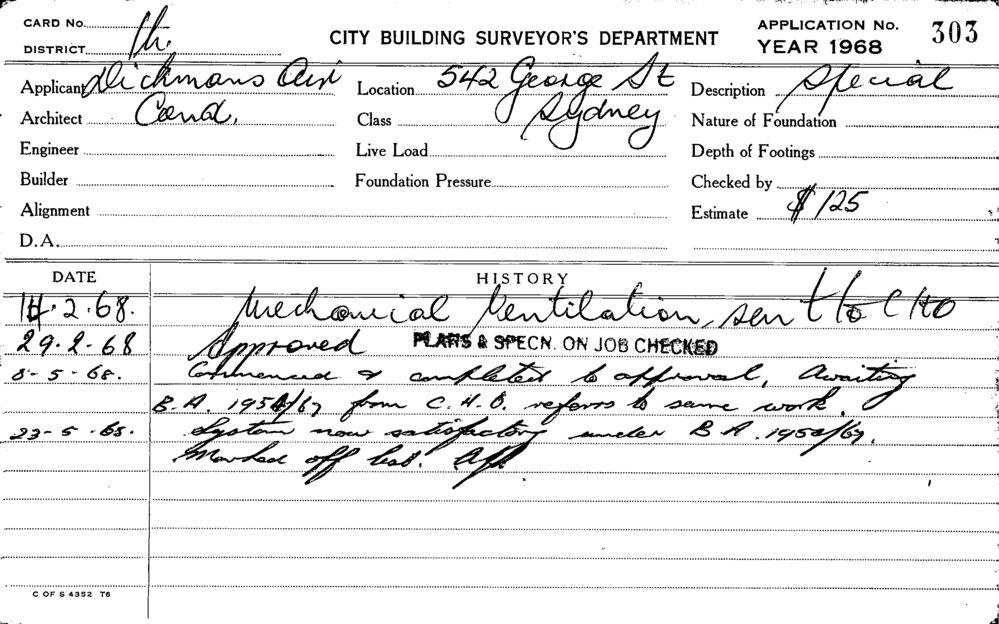 CARD No.
DISTRICT
CITY BUILDING SURVEYOR'S DEPARTMENT
APPLICATION No. 303
YEAR 1968
Applicant Dickmans Air Location 542 George St Description Special
Architect Cond. Class Sydney Nature of Foundation
Engineer Live Load Depth of Footings
Builder Foundation Pressure Checked by
Alignment Estimate $125
D.A.
DATE HISTORY
14.2.68. Mechanical Ventilation, sent to CHO
29.2.68 Approved PLANS & SPECN. ON JOB CHECKED
8-5-68. Commenced & completed to approval. Awaiting
B.A. /67 from C.H.O. referrs to same work.
23-5-68. System now satisfactory under B.A. /67.
Marked off list.
C OF S 4352 T6